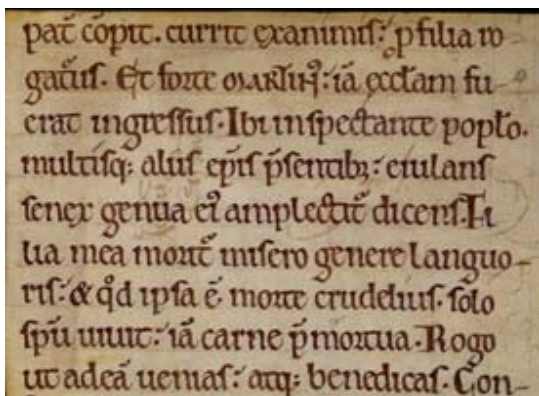 pat̄ cōpit. currit exanimis: ꝓ filia ro-
gatur̄. Et forte MARTINꝰ: iā ecctam fu-
erat ingressus. Ibi inspectante popl̄o.
multisq; aliis ep̄is p̄sentib;: eiulans
senex genua eiꝰ amplectit̄ dicens. Fi
lia mea morit̄ misero genere languo-
ris: & qd̄ ipsa ē morte crudelius. solo
sp̄u uiuit: iā carne p̄mortua. Rogo
ut adeā uenias: atq; benedicas. Con-